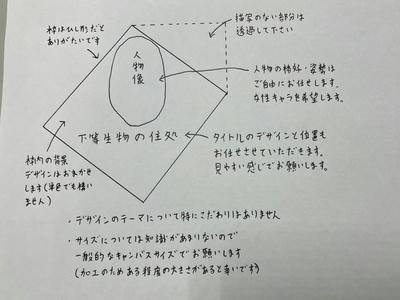 枠はひし形だと
ありがたいです
描写のない部分は
透過して下さい
人物像
人物の格好・姿勢は
ご自由にお任せします。
女性キャラを希望します。
下等生物の住処
タイトルのデザインと位置も
お任せさせていただきます。
見やすい感じでお願いします。
枠内の背景
デザインはおまかせ
します(単色でも構い
ません)
・デザインのテーマについて特にこだわりはありません
・サイズについては知識があまりないので
一般的なキャンバスサイズでお願いします
(加工のためある程度の大きさがあると幸いです)